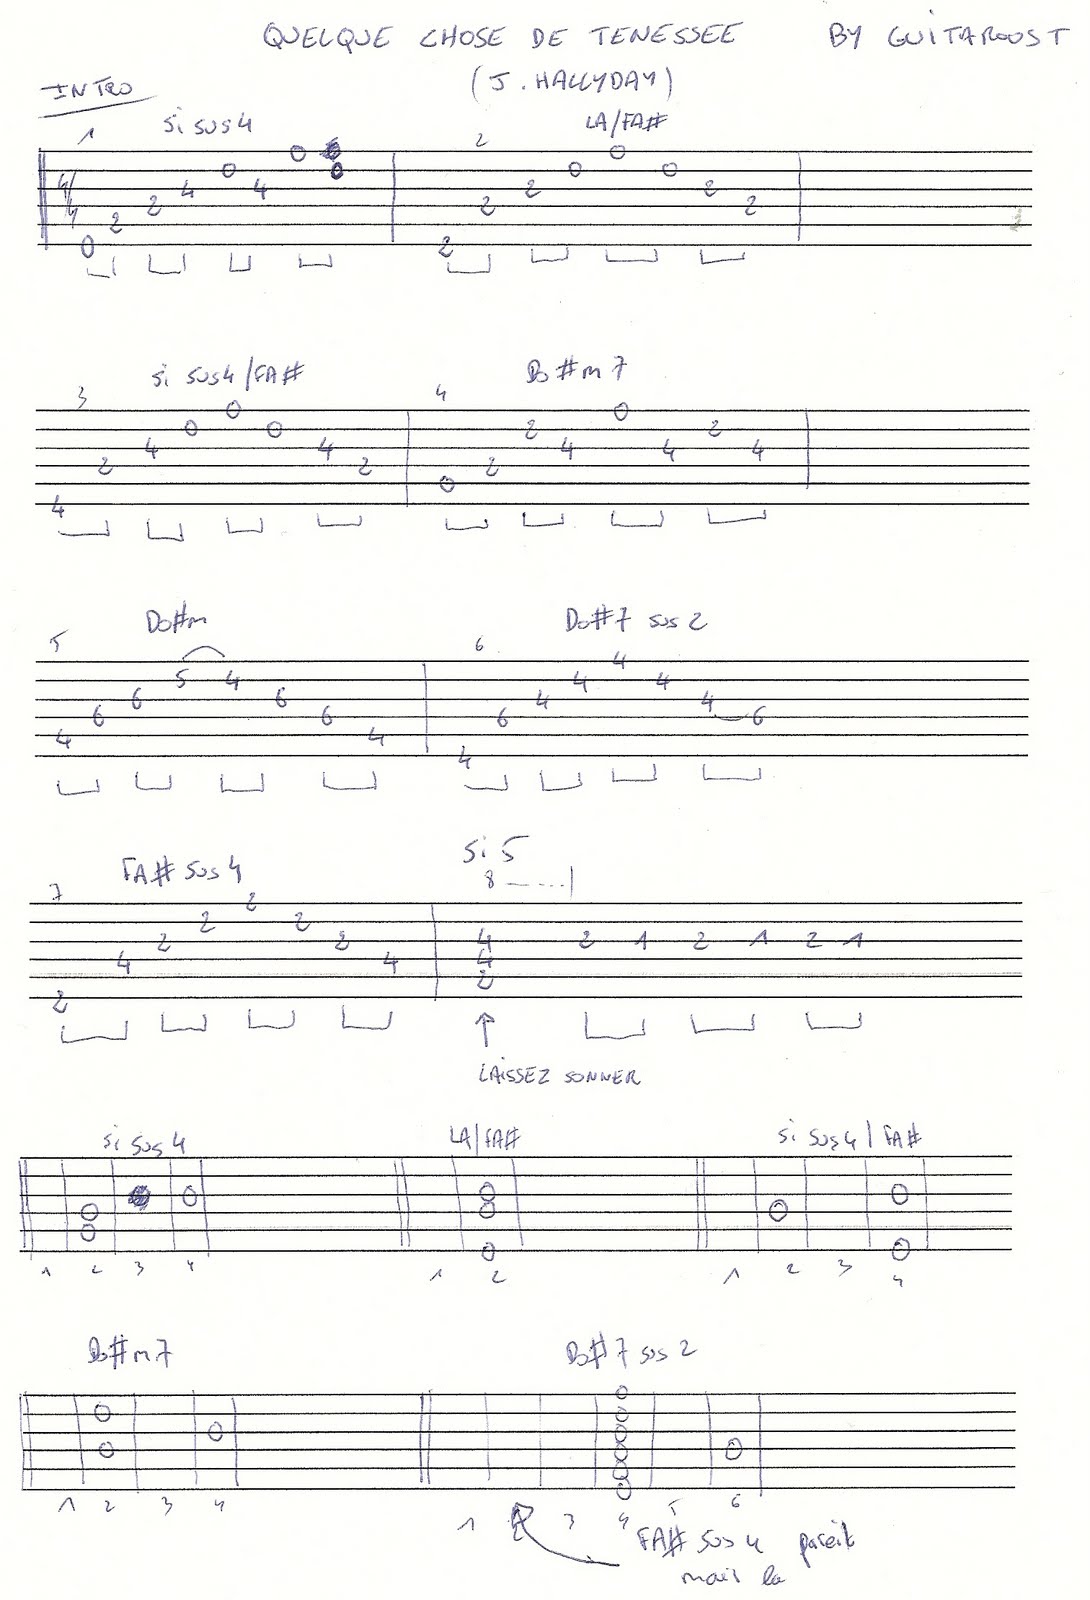 QUELQUE CHOSE DE TENESSEE BY GUITAROOST
(J. HALLYDAY)
INTRO
1 Si sus4 2 LA/FA#
4/4 0 2 2 4 0 4 0 0 2 2 2 0 0 0 2 2
3 Si sus4/FA# 4 Do#m7
4 2 4 0 0 0 4 2 0 2 2 4 0 4 2 4
5 Do#m 6 Do#7 sus2
4 6 6 5 4 6 6 4 4 6 4 4 4 4 4 6
7 FA# sus4 Si 5
8 ----|
2 4 2 2 2 2 2 4 4 4 2 2 1 2 1 2 1
LAISSEZ SONNER
Si sus4 LA/FA# Si sus4/FA#
1 2 3 4 1 2 1 2 3 4
Do#m7 Do#7 sus2
1 2 3 4 1 3 4 5 6
FA# sus4 pareil
mais la